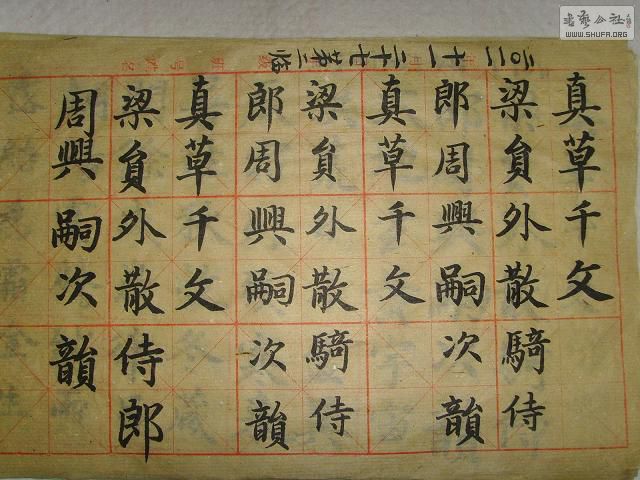 真草千文
梁貟外散騎侍
郎周興嗣次韻
真草千文
梁貟外散騎侍
郎周興嗣次韻
真草千文
梁貟外散侍郎
周興嗣次韻
十一 二十七 第三临
书艺公社
WWW.SHUFA.ORG